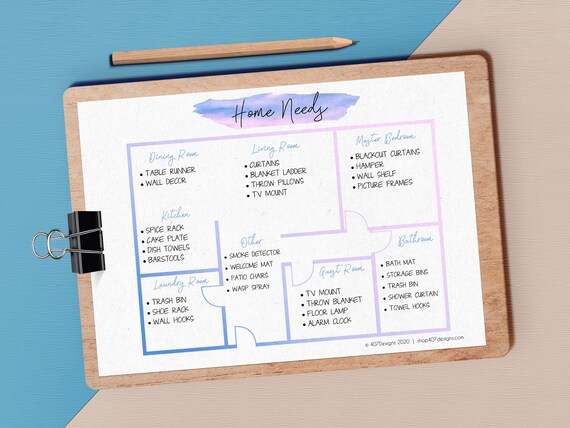 Home Needs
Dining Room
• TABLE RUNNER
• WALL DECOR
Living Room
• CURTAINS
• BLANKET LADDER
• THROW PILLOWS
• TV MOUNT
Master Bedroom
• BLACKOUT CURTAINS
• HAMPER
• WALL SHELF
• PICTURE FRAMES
Kitchen
• SPICE RACK
• CAKE PLATE
• DISH TOWELS
• BARSTOOLS
Other
• SMOKE DETECTOR
• WELCOME MAT
• PATIO CHAIRS
• WASP SPRAY
Bathroom
• BATH MAT
• STORAGE BINS
• TRASH BIN
• SHOWER CURTAIN
• TOWEL HOOKS
Laundry Room
• TRASH BIN
• SHOE RACK
• WALL HOOKS
Guest Room
• TV MOUNT
• THROW BLANKET
• FLOOR LAMP
• ALARM CLOCK
© 407Designs 2020 | shop407designs.com